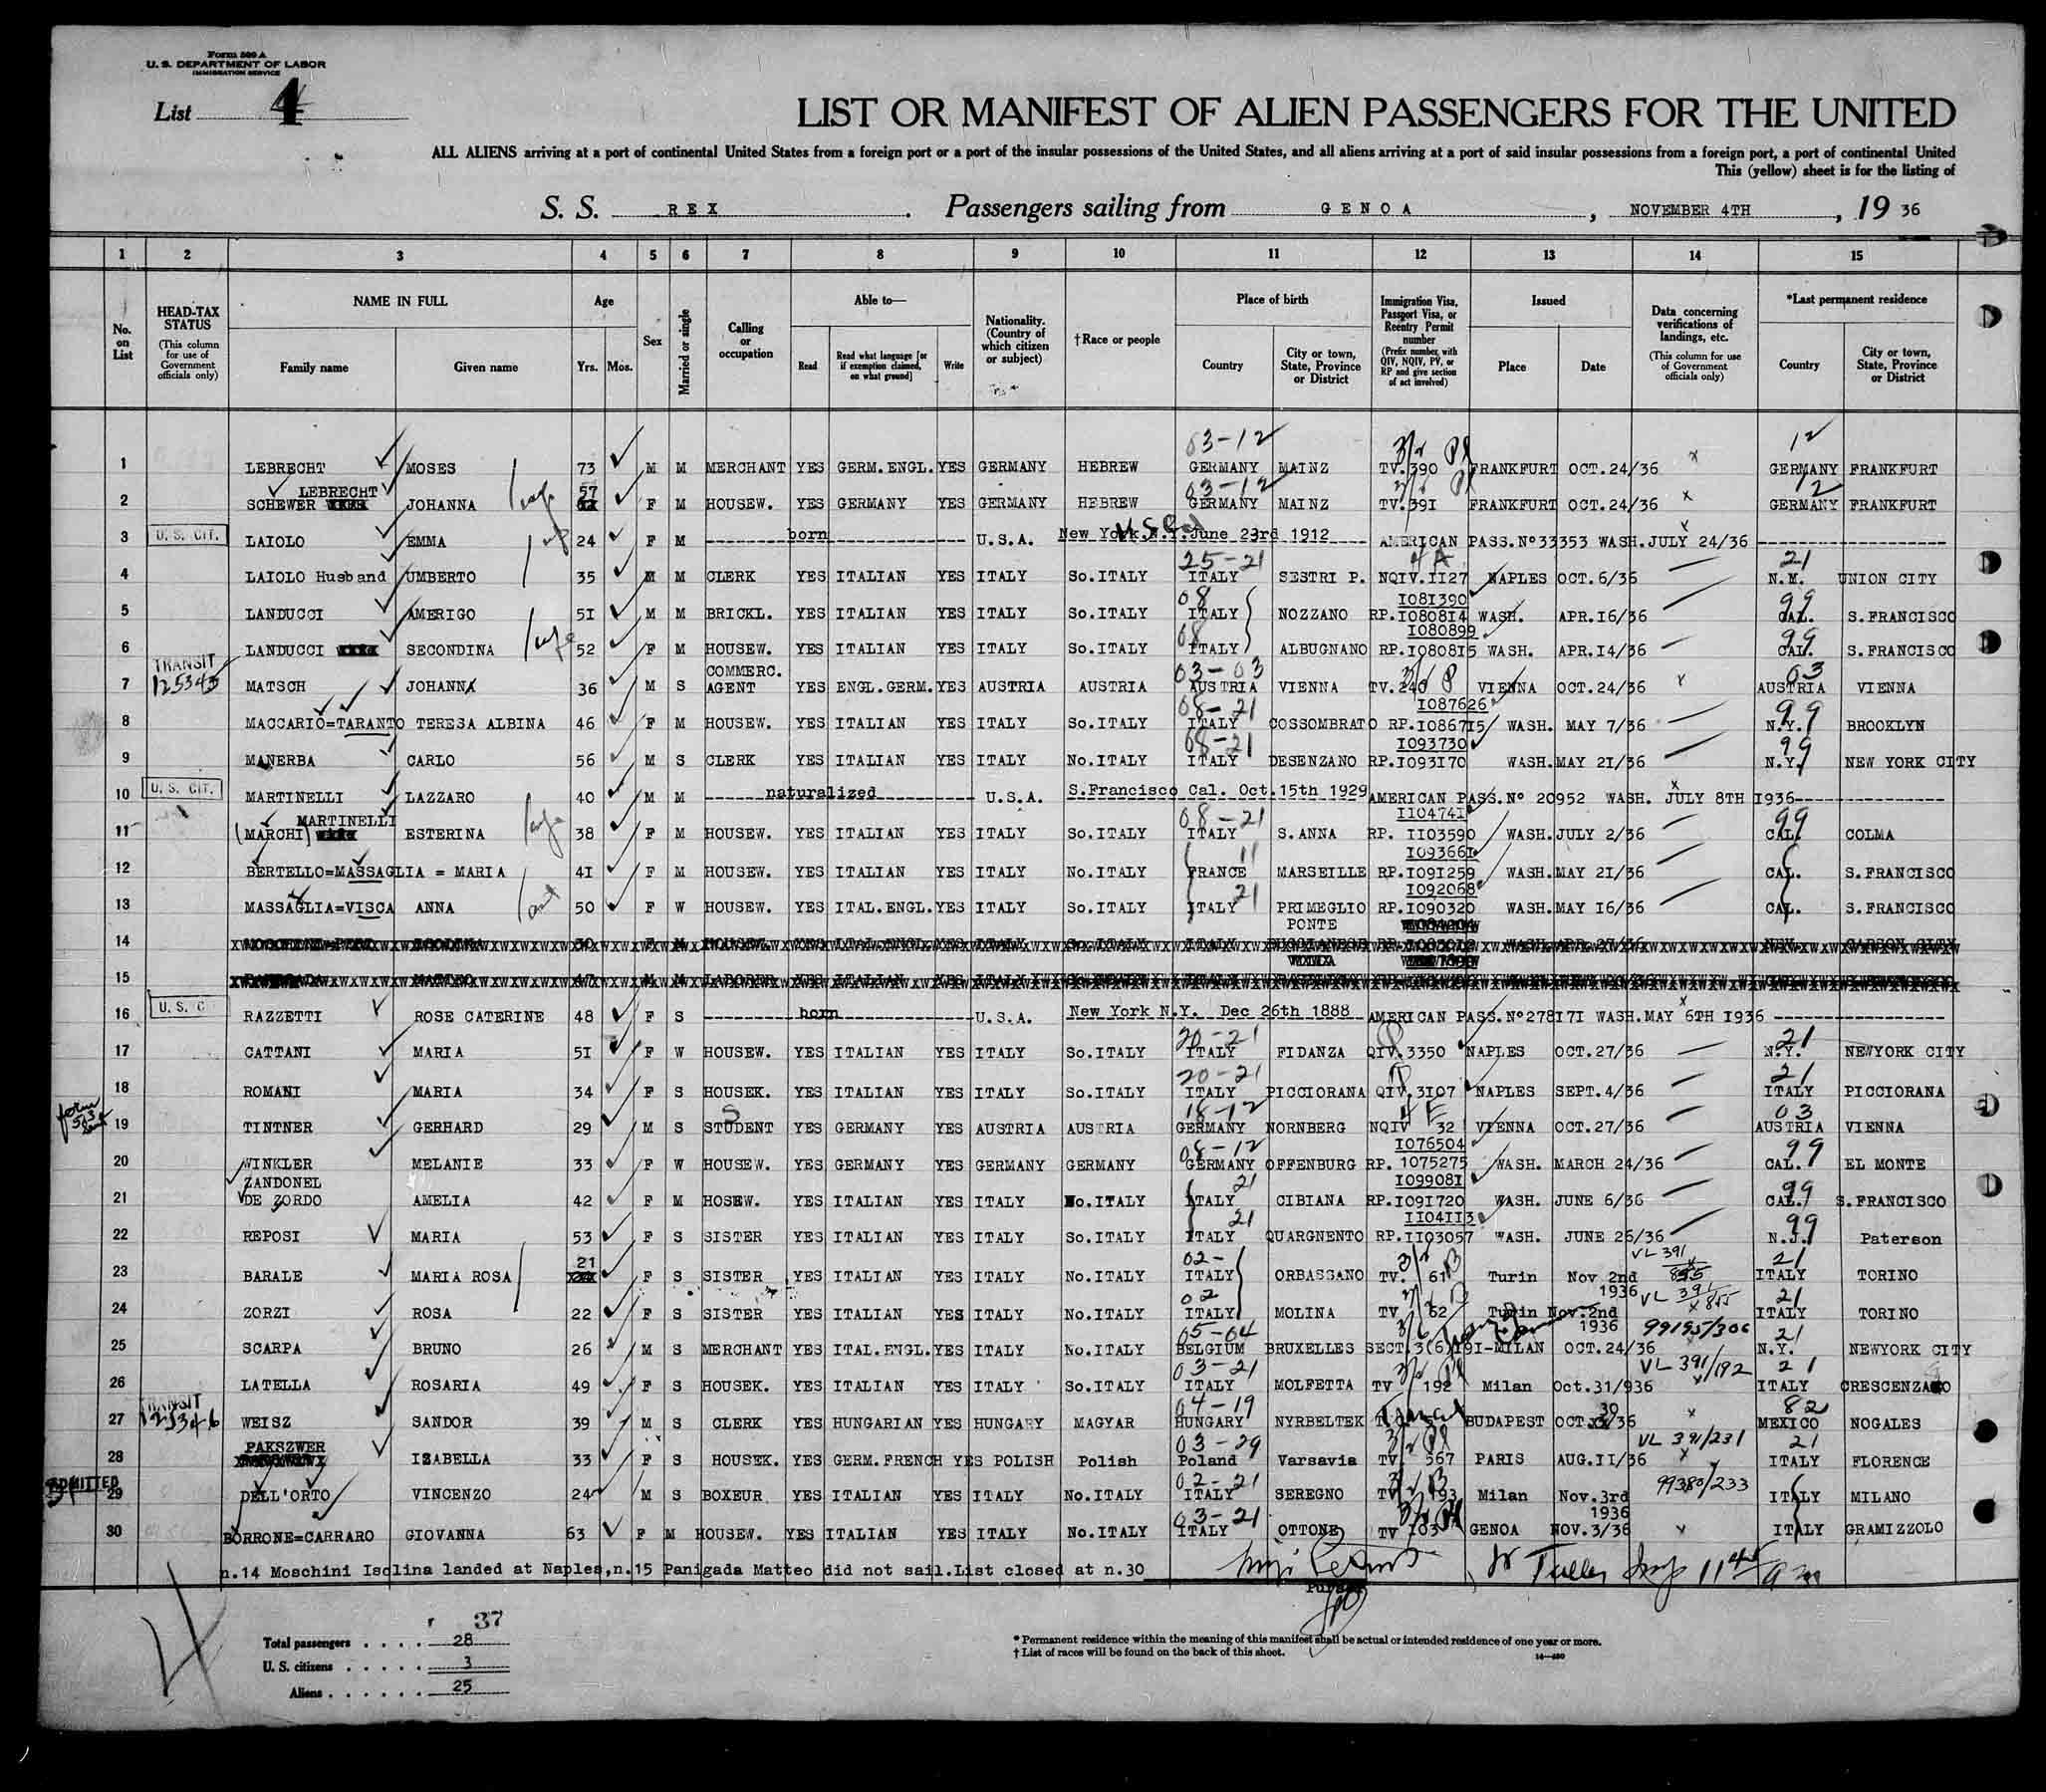 Form 500 A
U. S. DEPARTMENT OF LABOR
IMMIGRATION SERVICE
List 4
LIST OR MANIFEST OF ALIEN PASSENGERS FOR THE UNITED
ALL ALIENS arriving at a port of continental United States from a foreign port or a port of the insular possessions of the United States, and all aliens arriving at a port of said insular possessions from a foreign port, a port of continental United
This (yellow) sheet is for the listing of
S. S. REX. Passengers sailing from GENOA, NOVEMBER 4TH, 19 36
1 2 3 4 5 6 7 8 9 10 11 12 13 14 15
No. on List
HEAD-TAX STATUS (This column for use of Government officials only)
NAME IN FULL Family name Given name
Age Yrs. Mos.
Sex
Married or single
Calling or occupation
Able to— Read Read what language [or if exemption claimed, on what ground] Write
Nationality. (Country of which citizen or subject)
†Race or people
Place of birth Country City or town, State, Province or District
Immigration Visa, Passport Visa, or Reentry Permit number (Prefix number with QIV, NQIV, PV, or RP and give section of act involved)
Issued Place Date
Data concerning verifications of landings, etc. (This column for use of Government officials only)
*Last permanent residence Country City or town, State, Province or District
03-12 12
1 LEBRECHT MOSES 73 M M MERCHANT YES GERM.ENGL. YES GERMANY HEBREW GERMANY MAINZ TV.390 FRANKFURT OCT.24/36 x GERMANY FRANKFURT
LEBRECHT 57 03-12 12
2 SCHEWER JOHANNA wife F M HOUSEW. YES GERMANY YES GERMANY HEBREW GERMANY MAINZ TV.391 FRANKFURT OCT.24/36 x GERMANY FRANKFURT
3 U. S. CIT. LAIOLO EMMA wf 24 F M born U.S.A. New York.N.Y.June 23rd 1912 AMERICAN PASS.Nº33353 WASH.JULY 24/36
25-21 4A 21
4 LAIOLO Husband UMBERTO 35 M M CLERK YES ITALIAN YES ITALY So.ITALY ITALY SESTRI P. NQIV.1127 NAPLES OCT.6/36 N.M. UNION CITY
08 1081390 99
5 LANDUCCI AMERIGO 51 M M BRICKL. YES ITALIAN YES ITALY So.ITALY ITALY NOZZANO RP.1080814 WASH. APR.16/36 CAL. S.FRANCISCO
08 1080899 99
6 LANDUCCI SECONDINA wife 52 F M HOUSEW. YES ITALIAN YES ITALY So.ITALY ITALY ALBUGNANO RP.1080815 WASH. APR.14/36 CAL. S.FRANCISCO
TRANSIT 125345 COMMERC. 03-03 03
7 MATSCH JOHANN 36 M S AGENT YES ENGL.GERM. YES AUSTRIA AUSTRIA AUSTRIA VIENNA TV.240 VIENNA OCT.24/36 x AUSTRIA VIENNA
08-21 1087626 99
8 MACCARIO=TARANTO TERESA ALBINA 46 F M HOUSEW. YES ITALIAN YES ITALY So.ITALY ITALY COSSOMBRATO RP.1086715 WASH. MAY 7/36 N.Y. BROOKLYN
08-21 1093730 99
9 MANERBA CARLO 56 M S CLERK YES ITALIAN YES ITALY No.ITALY ITALY DESENZANO RP.1093170 WASH.MAY 21/36 N.Y. NEW YORK CITY
10 U. S. CIT. MARTINELLI LAZZARO 40 M M naturalized U.S.A. S.Francisco Cal. Oct.15th 1929 AMERICAN PASS.Nº 20952 WASH. JULY 8TH 1936
MARTINELLI 08-21 1104741 99
11 (MARCHI) ESTERINA wife 38 F M HOUSEW. YES ITALIAN YES ITALY So.ITALY ITALY S.ANNA RP. 1103590 WASH.JULY 2/36 CAL. COLMA
11 1093661
12 BERTELLO=MASSAGLIA = MARIA 41 F M HOUSEW. YES ITALIAN YES ITALY No.ITALY FRANCE MARSEILLE RP.1091259 WASH.MAY 21/36 CAL. S.FRANCISCO
21 1092068
13 MASSAGLIA=VISCA ANNA aunt 50 F W HOUSEW. YES ITAL.ENGL. YES ITALY So.ITALY ITALY PRIMEGLIO RP.1090320 WASH.MAY 16/36 CAL. S.FRANCISCO
PONTE
14
15
16 U. S. C RAZZETTI ROSE CATERINE 48 F S born U.S.A. New York N.Y. Dec 26th 1888 AMERICAN PASS.Nº278171 WASH.MAY 6TH 1936
20-21 21
17 CATTANI MARIA 51 F W HOUSEW. YES ITALIAN YES ITALY So.ITALY ITALY FIDANZA QIV.3350 NAPLES OCT.27/36 N.Y. NEWYORK CITY
20-21 21
18 ROMANI MARIA 34 F S HOUSEK. YES ITALIAN YES ITALY So.ITALY ITALY PICCIORANA QIV.3107 NAPLES SEPT.4/36 ITALY PICCIORANA
18-12 03
19 TINTNER GERHARD 29 M S STUDENT YES GERMANY YES AUSTRIA AUSTRIA GERMANY NORNBERG NQIV 32 VIENNA OCT.27/36 AUSTRIA VIENNA
08-12 1076504 99
20 WINKLER MELANIE 33 F W HOUSEW. YES GERMANY YES GERMANY GERMANY GERMANY OFFENBURG RP. 1075275 WASH. MARCH 24/36 CAL. EL MONTE
ZANDONEL 21 1099081 99
21 DE ZORDO AMELIA 42 F M HOSEW. YES ITALIAN YES ITALY No.ITALY ITALY CIBIANA RP.1091720 WASH. JUNE 6/36 CAL. S.FRANCISCO
21 1104113 99
22 REPOSI MARIA 53 F S SISTER YES ITALIAN YES ITALY So.ITALY ITALY QUARGNENTO RP.1103057 WASH. JUNE 26/36 N.J. Paterson
21 02- VL 391 21
23 BARALE MARIA ROSA F S SISTER YES ITALIAN YES ITALY No.ITALY ITALY ORBASSANO TV. 61 Turin Nov 2nd 1936 855 ITALY TORINO
02 VL 391 21
24 ZORZI ROSA 22 F S SISTER YES ITALIAN YES ITALY No.ITALY ITALY MOLINA TV 62 Turin Nov.2nd 1936 x855 ITALY TORINO
05-04 99195/306 21
25 SCARPA BRUNO 26 M S MERCHANT YES ITAL.ENGL. YES ITALY No.ITALY BELGIUM BRUXELLES SECT.3(6)191-MILAN OCT.24/36 N.Y. NEWYORK CITY
03-21 VL 391/192 21
26 LATELLA ROSARIA 49 F S HOUSEK. YES ITALIAN YES ITALY So.ITALY ITALY MOLFETTA TV 192 Milan Oct.31/936 ITALY CRESCENZAGO
TRANSIT 125346 04-19 30 82
27 WEISZ SANDOR 39 M S CLERK YES HUNGARIAN YES HUNGARY MAGYAR HUNGARY NYRBELTEK BUDAPEST OCT. /36 x MEXICO NOGALES
PAKSZWER 03-29 VL 391/231 21
28 IZABELLA 33 F S HOUSEK. YES GERM.FRENCH YES POLISH Polish Poland Varsavia TV 567 PARIS AUG.11/36 x ITALY FLORENCE
ADMITTED 02-21 99380/233
29 DELL'ORTO VINCENZO 24 M S BOXEUR YES ITALIAN YES ITALY No.ITALY ITALY SEREGNO TV 193 Milan Nov.3rd 1936 ITALY MILANO
03-21
30 BORRONE=CARRARO GIOVANNA 63 F M HOUSEW. YES ITALIAN YES ITALY No.ITALY ITALY OTTONE TV 103 GENOA NOV.3/36 x ITALY GRAMIZZOLO
n.14 Moschini Isolina landed at Naples,n.15 Panigada Matteo did not sail.List closed at n.30
Purser
37
Total passengers 28
U. S. citizens 3
Aliens 25
* Permanent residence within the meaning of this manifest shall be actual or intended residence of one year or more.
† List of races will be found on the back of this sheet.